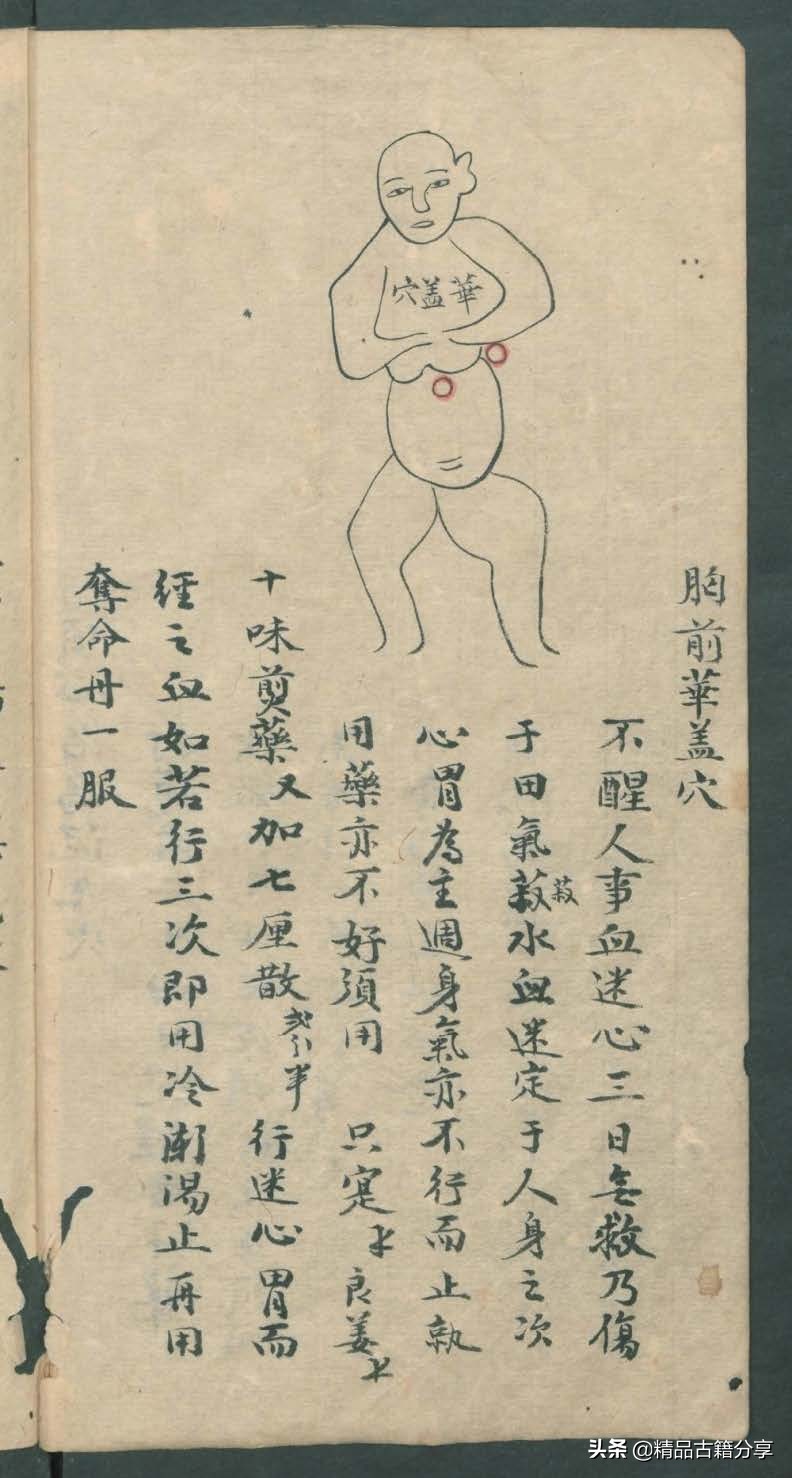 胸前華盖穴
華盖穴
不醒人事血迷心三日無救乃傷
于田氣菽水血迷定于人身之次
菽
心胃為主週身氣亦不行而止執
用藥亦不好須用 只寔 良姜
十味煎藥又加七厘散 半 行迷心胃而
經之血如若行三次即用冷粥湯止再用
奪命丹一服
头条 @精品古籍分享